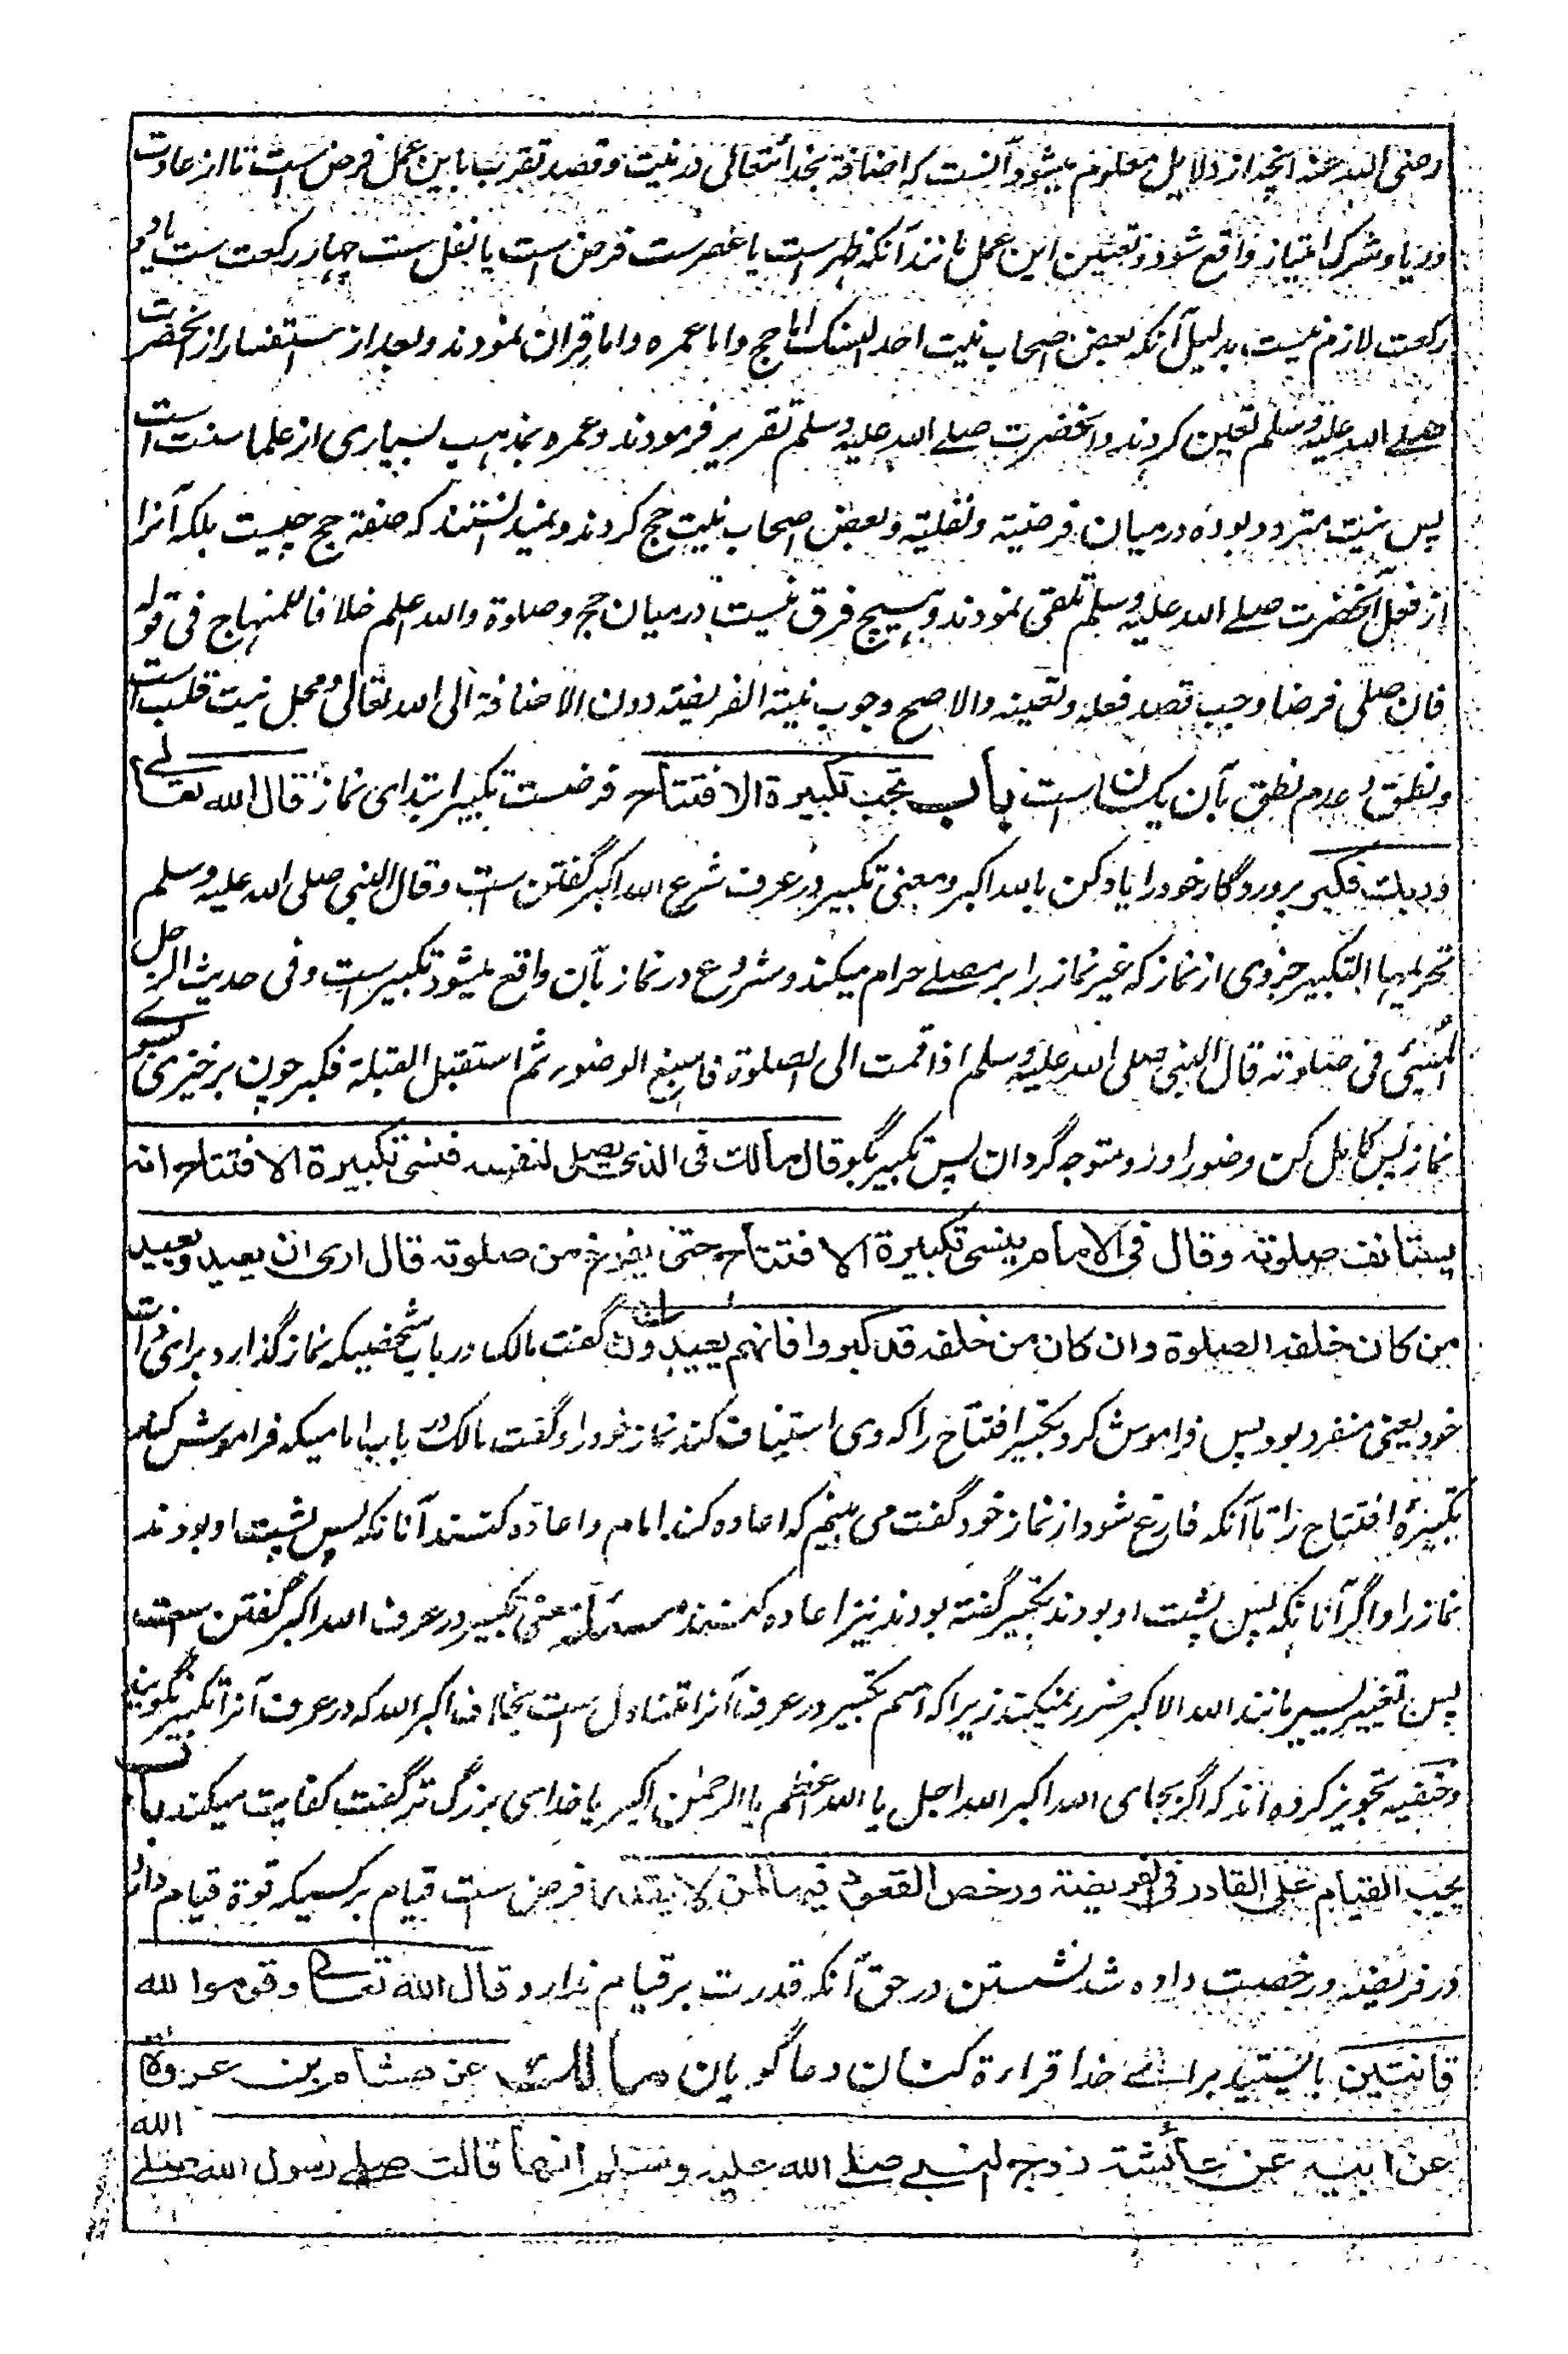 رضی الله عنه آنچه از دلایل معلوم میشود آنست که اضافة بخدا تعالی در نیت و قصد تقرب باین عمل فرض است تا از عادت
و ریا و شرک امتیاز واقع شود و تعیین این عمل مانند آنکه ظهر است یا عصر ست فرض است یا نفل ست چهار رکعت ست یا دو
رکعت لازم نیست بدلیل آنکه بعض اصحاب نیت احد النسک اما حج و اما عمره و اما قران نمودند و بعد از استفسار از آنحضرت
صلے الله علیه وسلم تعین کردند و آنحضرت صلے الله علیه وسلم تقریر فرمودند و عمره بمذهب بسیاری از علما سنت است
پس نیت متردد بوده درمیان فرضیة و نفلیة و بعض اصحاب نیت حج کردند و نمیدانستند که صفة حج چیست بلکه آنرا
از فعل آنحضرت صلے الله علیه وسلم تلقی نمودند و هیچ فرق نیست درمیان حج و صلوة والله اعلم خلافا للمنهاج فی قوله
فان صلی فرضا وجب قصد فعله و تعینه والاصح وجوب نیة الفریضة دون الاضافة الی الله تعالی و محل نیت قلب است
و نطق و عدم نطق بآن یکسان است باب تجب تکبیرة الافتتاح فرضست تکبیر ابتدای نماز قال الله تعالے
وربك فکبر پروردگار خود را یاد کن بالله اکبر و معنی تکبیر در عرف شرع الله اکبر گفتن ست وقال النبی صلی الله علیه وسلم
تحریمها التکبیر جزوی از نماز که غیر نماز را بر مصلے حرام میکند و شروع در نماز بآن واقع میشود تکبیر است وفی حدیث الرجل
المسیٔ فی صلوته قال النبی صلی الله علیه وسلم اذا قمت الی الصلوة فاسبغ الوضوء ثم استقبل القبلة فکبر چون برخیزی بسوے
نماز پس کامل کن وضو را و رو متوجه گردان پس تکبیر بگو قال مالك فی الذی یصلی لنفسه فنسی تکبیرة الافتتاح انه
یستانف صلوته وقال فی الامام ینسی تکبیرة الافتتاح حتی یفرغ من صلوته قال اری ان یعید ویعید
من کان خلفه الصلوة وان کان من خلفه قد کبروا فانهم یعیدون گفت مالک در باب شخصیکه نماز گذارد برای ذات
خود یعنی منفرد بود پس فراموش کرد تکبیر افتتاح را که وی استیناف کند نماز خود را و گفت مالک در باب امامیکه فراموش کند
تکبیرهٔ افتتاح را تا آنکه فارغ شود از نماز خود گفت می بینم که اعاده کند امام و اعاده کنند آنانکه پس پشت او بودند
نماز را و اگر آنانکه پس پشت او بودند تکبیر گفته بودند نیز اعاده کنند مسئلة معنی تکبیر در عرف الله اکبر گفتن ست
پس تغییر یسیر مانند الله الاکبر ضرر نمیکند زیرا که اسم تکبیر در عرف آنرا متناول ست بخلاف اکبر الله که در عرف آنرا تکبیر نگویند
و حنفیه تجویز کرده اند که اگر بجای الله اکبر الله اجل یا الله اعظم یا الرحمن اکبر یا خدای بزرگ تر گفت کفایت میکند باب
یجب القیام علی القادر فی الفریضة ورخص القعود فیها لمن لا یقدر فرض ست قیام بر کسیکه قوة قیام دارد
در فریضه و رخصت داده شد نشستن در حق آنکه قدرت بر قیام ندارد قال الله تعالے وقوموا لله
قانتین بایستید براے خدا قراءة کنان دعا گویان مالك عن هشام بن عروة
عن ابیه عن عائشة زوج النبے صلے الله علیه وسلم انها قالت صلے رسول الله صلے الله